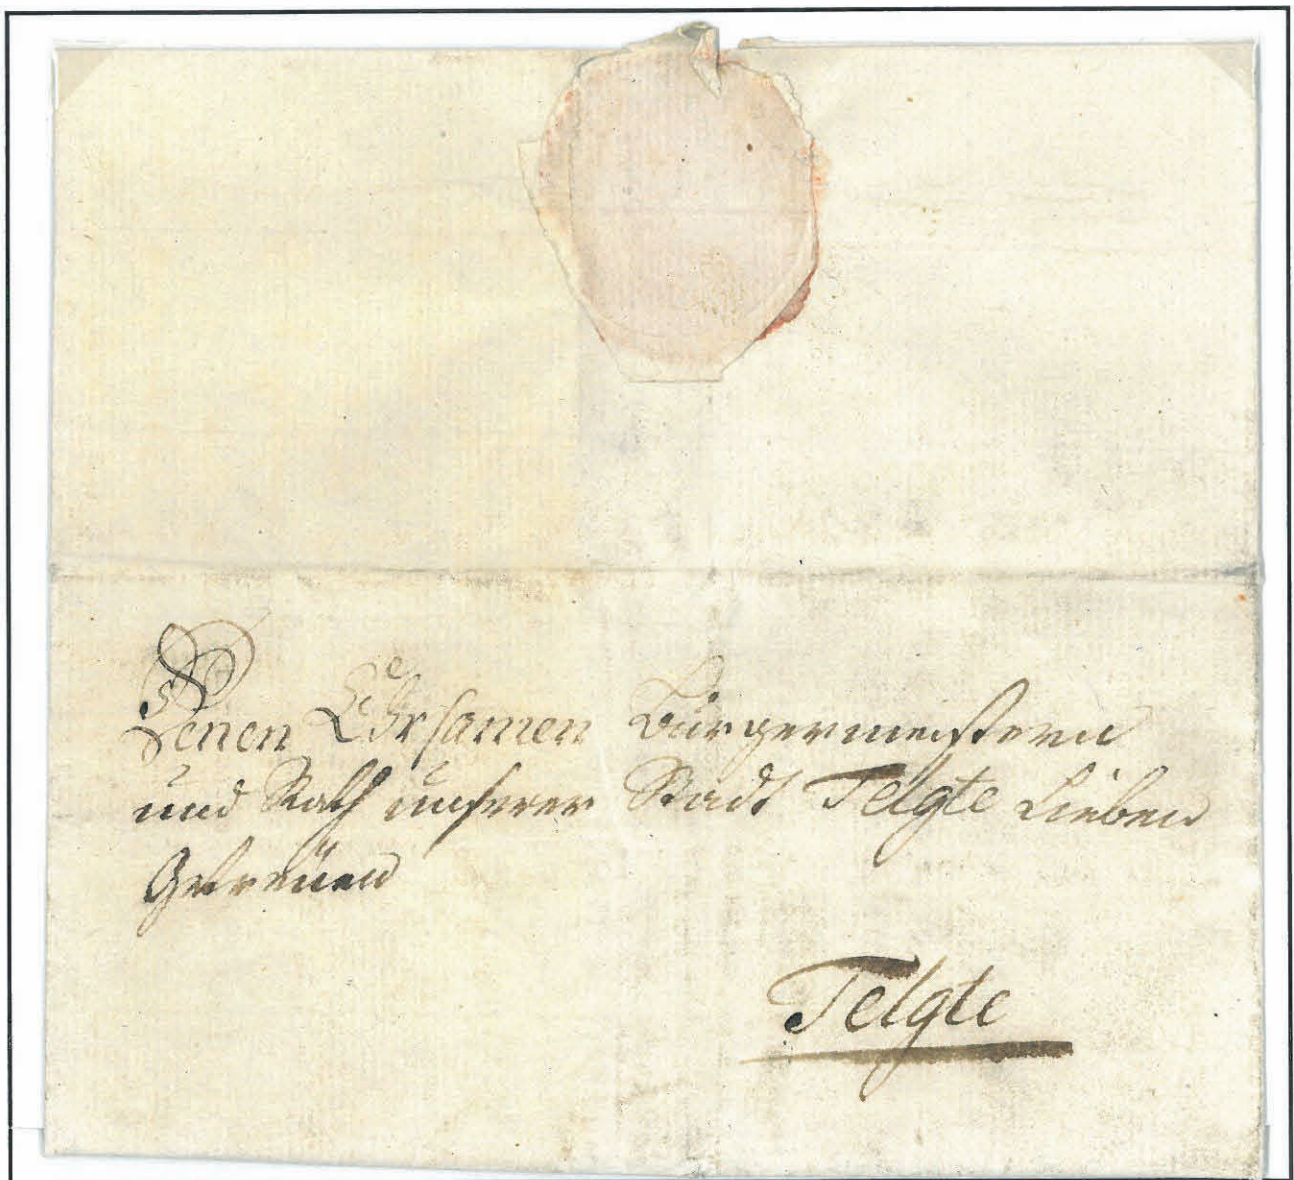 Denen Ehrsamen Bürgermeistern
und Rath unserer Stadt Telgte Lieben
Getreüen
Telgte